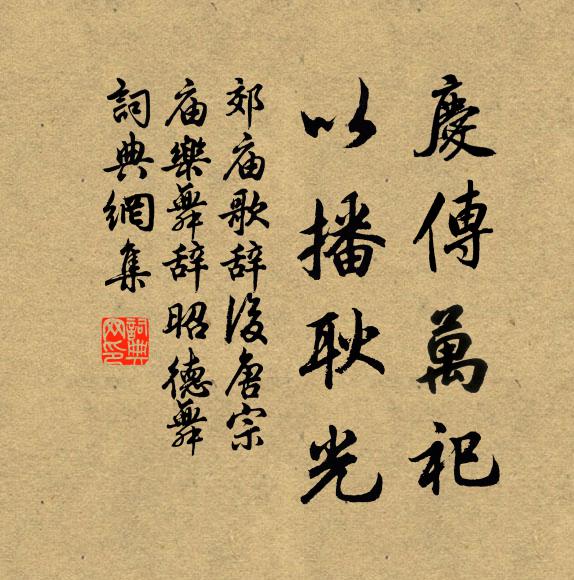 慶傳萬祀
以播耿光
郊庙歌辞後唐宗
庙樂舞辞昭德舞
詞典網集
詞典網印